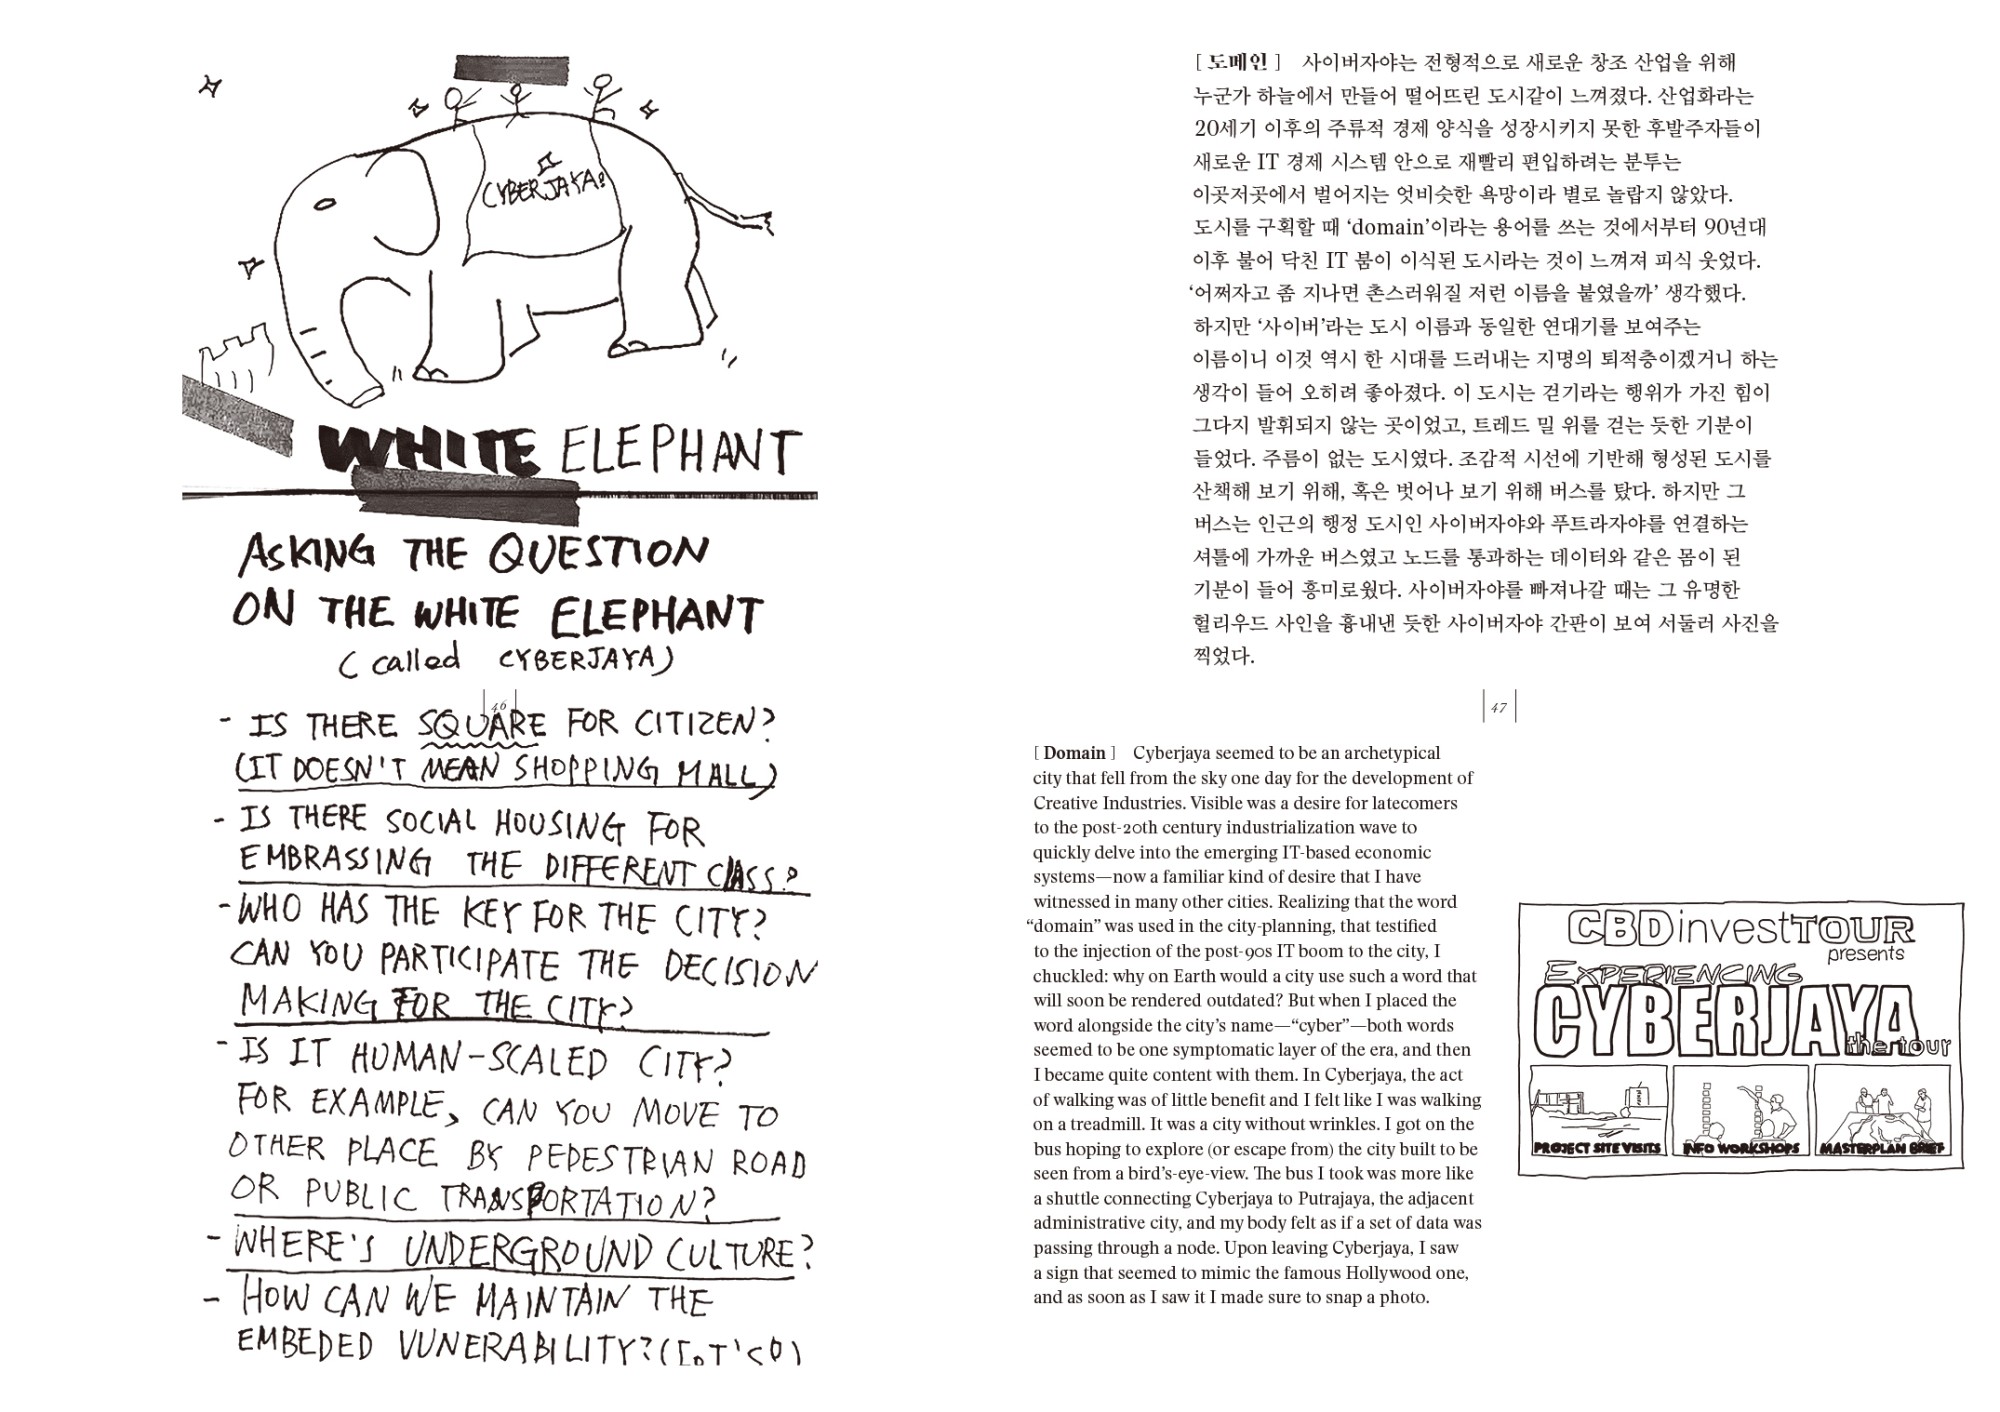 CYBERJAYA!
WHITE ELEPHANT
ASKING THE QUESTION
ON THE WHITE ELEPHANT
(called CYBERJAYA)
46
- IS THERE SQUARE FOR CITIZEN?
(IT DOESN'T MEAN SHOPPING MALL)
- IS THERE SOCIAL HOUSING FOR
EMBRASSING THE DIFFERENT CLASS?
- WHO HAS THE KEY FOR THE CITY?
CAN YOU PARTICIPATE THE DECISION
MAKING FOR THE CITY?
- IS IT HUMAN-SCALED CITY?
FOR EXAMPLE, CAN YOU MOVE TO
OTHER PLACE BY PEDESTRIAN ROAD
OR PUBLIC TRANSPORTATION?
- WHERE'S UNDERGROUND CULTURE?
- HOW CAN WE MAINTAIN THE
EMBEDED VUNERABILITY?
[ 도메인 ] 사이버자야는 전형적으로 새로운 창조 산업을 위해
누군가 하늘에서 만들어 떨어뜨린 도시같이 느껴졌다. 산업화라는
20세기 이후의 주류적 경제 양식을 성장시키지 못한 후발주자들이
새로운 IT 경제 시스템 안으로 재빨리 편입하려는 분투는
이곳저곳에서 벌어지는 엇비슷한 욕망이라 별로 놀랍지 않았다.
도시를 구획할 때 ‘domain’이라는 용어를 쓰는 것에서부터 90년대
이후 불어 닥친 IT 붐이 이식된 도시라는 것이 느껴져 피식 웃었다.
‘어쩌자고 좀 지나면 촌스러워질 저런 이름을 붙였을까’ 생각했다.
하지만 ‘사이버’라는 도시 이름과 동일한 연대기를 보여주는
이름이니 이것 역시 한 시대를 드러내는 지명의 퇴적층이겠거니 하는
생각이 들어 오히려 좋아졌다. 이 도시는 걷기라는 행위가 가진 힘이
그다지 발휘되지 않는 곳이었고, 트레드 밀 위를 걷는 듯한 기분이
들었다. 주름이 없는 도시였다. 조감적 시선에 기반해 형성된 도시를
산책해 보기 위해, 혹은 벗어나 보기 위해 버스를 탔다. 하지만 그
버스는 인근의 행정 도시인 사이버자야와 푸트라자야를 연결하는
셔틀에 가까운 버스였고 노드를 통과하는 데이터와 같은 몸이 된
기분이 들어 흥미로웠다. 사이버자야를 빠져나갈 때는 그 유명한
헐리우드 사인을 흉내낸 듯한 사이버자야 간판이 보여 서둘러 사진을
찍었다.
47
[ Domain ] Cyberjaya seemed to be an archetypical
city that fell from the sky one day for the development of
Creative Industries. Visible was a desire for latecomers
to the post-20th century industrialization wave to
quickly delve into the emerging IT-based economic
systems—now a familiar kind of desire that I have
witnessed in many other cities. Realizing that the word
“domain” was used in the city-planning, that testified
to the injection of the post-90s IT boom to the city, I
chuckled: why on Earth would a city use such a word that
will soon be rendered outdated? But when I placed the
word alongside the city’s name—“cyber”—both words
seemed to be one symptomatic layer of the era, and then
I became quite content with them. In Cyberjaya, the act
of walking was of little benefit and I felt like I was walking
on a treadmill. It was a city without wrinkles. I got on the
bus hoping to explore (or escape from) the city built to be
seen from a bird’s-eye-view. The bus I took was more like
a shuttle connecting Cyberjaya to Putrajaya, the adjacent
administrative city, and my body felt as if a set of data was
passing through a node. Upon leaving Cyberjaya, I saw
a sign that seemed to mimic the famous Hollywood one,
and as soon as I saw it I made sure to snap a photo.
CBDinvestTOUR
presents
EXPERIENCING
CYBERJAYA
the tour
PROJECT SITE VISITS
INFO WORKSHOPS
MASTERPLAN BRIEF